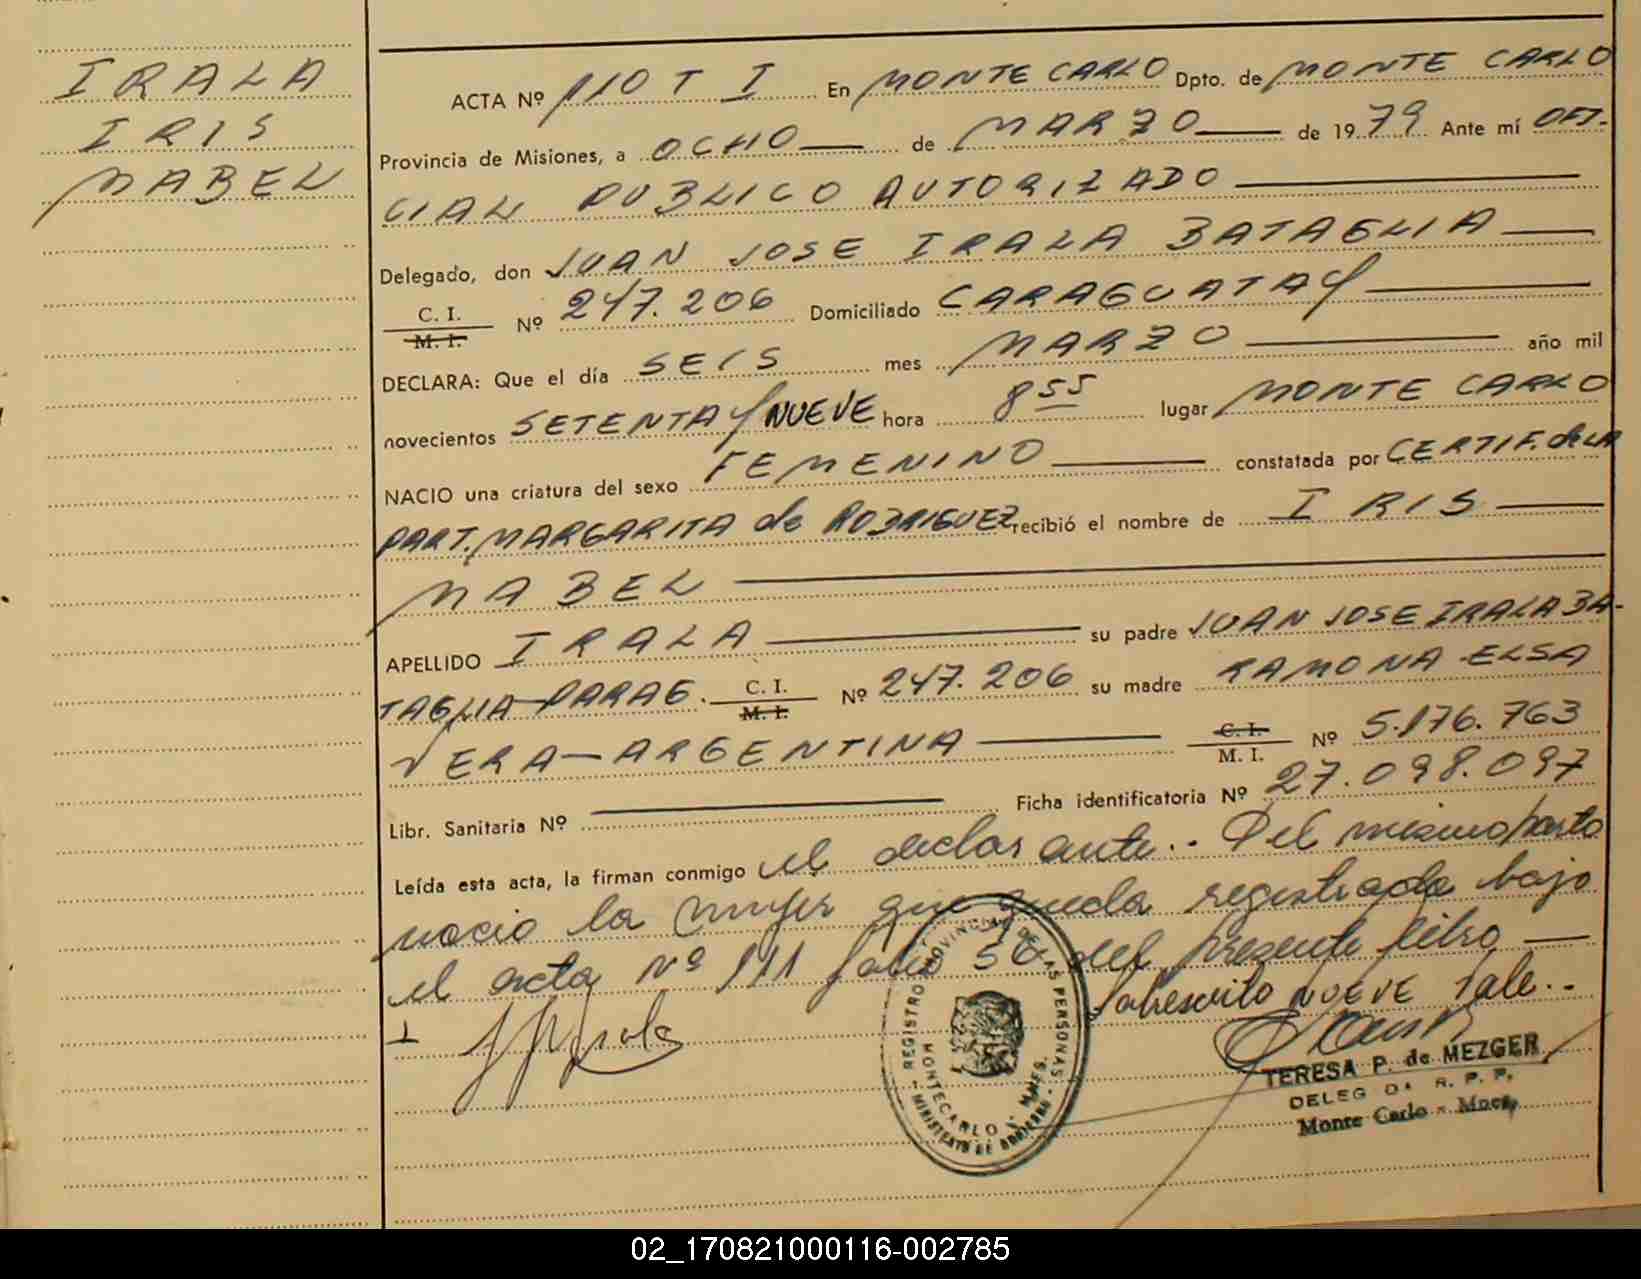 IRALA
IRIS
MABEL
ACTA Nº 110 T I En MONTE CARLO Dpto. de MONTE CARLO
Provincia de Misiones, a OCHO de MARZO de 1979 Ante mí OFI-
CIAL PUBLICO AUTORIZADO
Delegado, don JUAN JOSE IRALA BATAGLIA
C. I.
M. I. Nº 247.206 Domiciliado CARAGUATAY
DECLARA: Que el día SEIS mes MARZO año mil
novecientos SETENTA Y NUEVE hora 8 55 lugar MONTE CARLO
NACIO una criatura del sexo FEMENINO constatada por CERTIF. de LA
PART. MARGARITA de RODRIGUEZ recibió el nombre de IRIS
MABEL
APELLIDO IRALA su padre JUAN JOSE IRALA BA-
TAGLIA-PARAG. C. I. M. I. Nº 247.206 su madre RAMONA ELSA
VERA-ARGENTINA C. I. M. I. Nº 5.176.763
Libr. Sanitaria Nº Ficha identificatoria Nº 27.098.097
Leída esta acta, la firman conmigo el declarante.. Del mismo parto
nacio la mujer que queda registrada bajo
el acta Nº 111 folio 56 del presente libro
Sobrescrito NUEVE Vale..
REGISTRO PROVINCIAL DE LAS PERSONAS
MONTECARLO - MNES.
MINISTERIO DE GOBIERNO
TERESA P. de MEZGER
DELEGDA R. P. P.
Monte Carlo - Mnes.
02_170821000116-002785